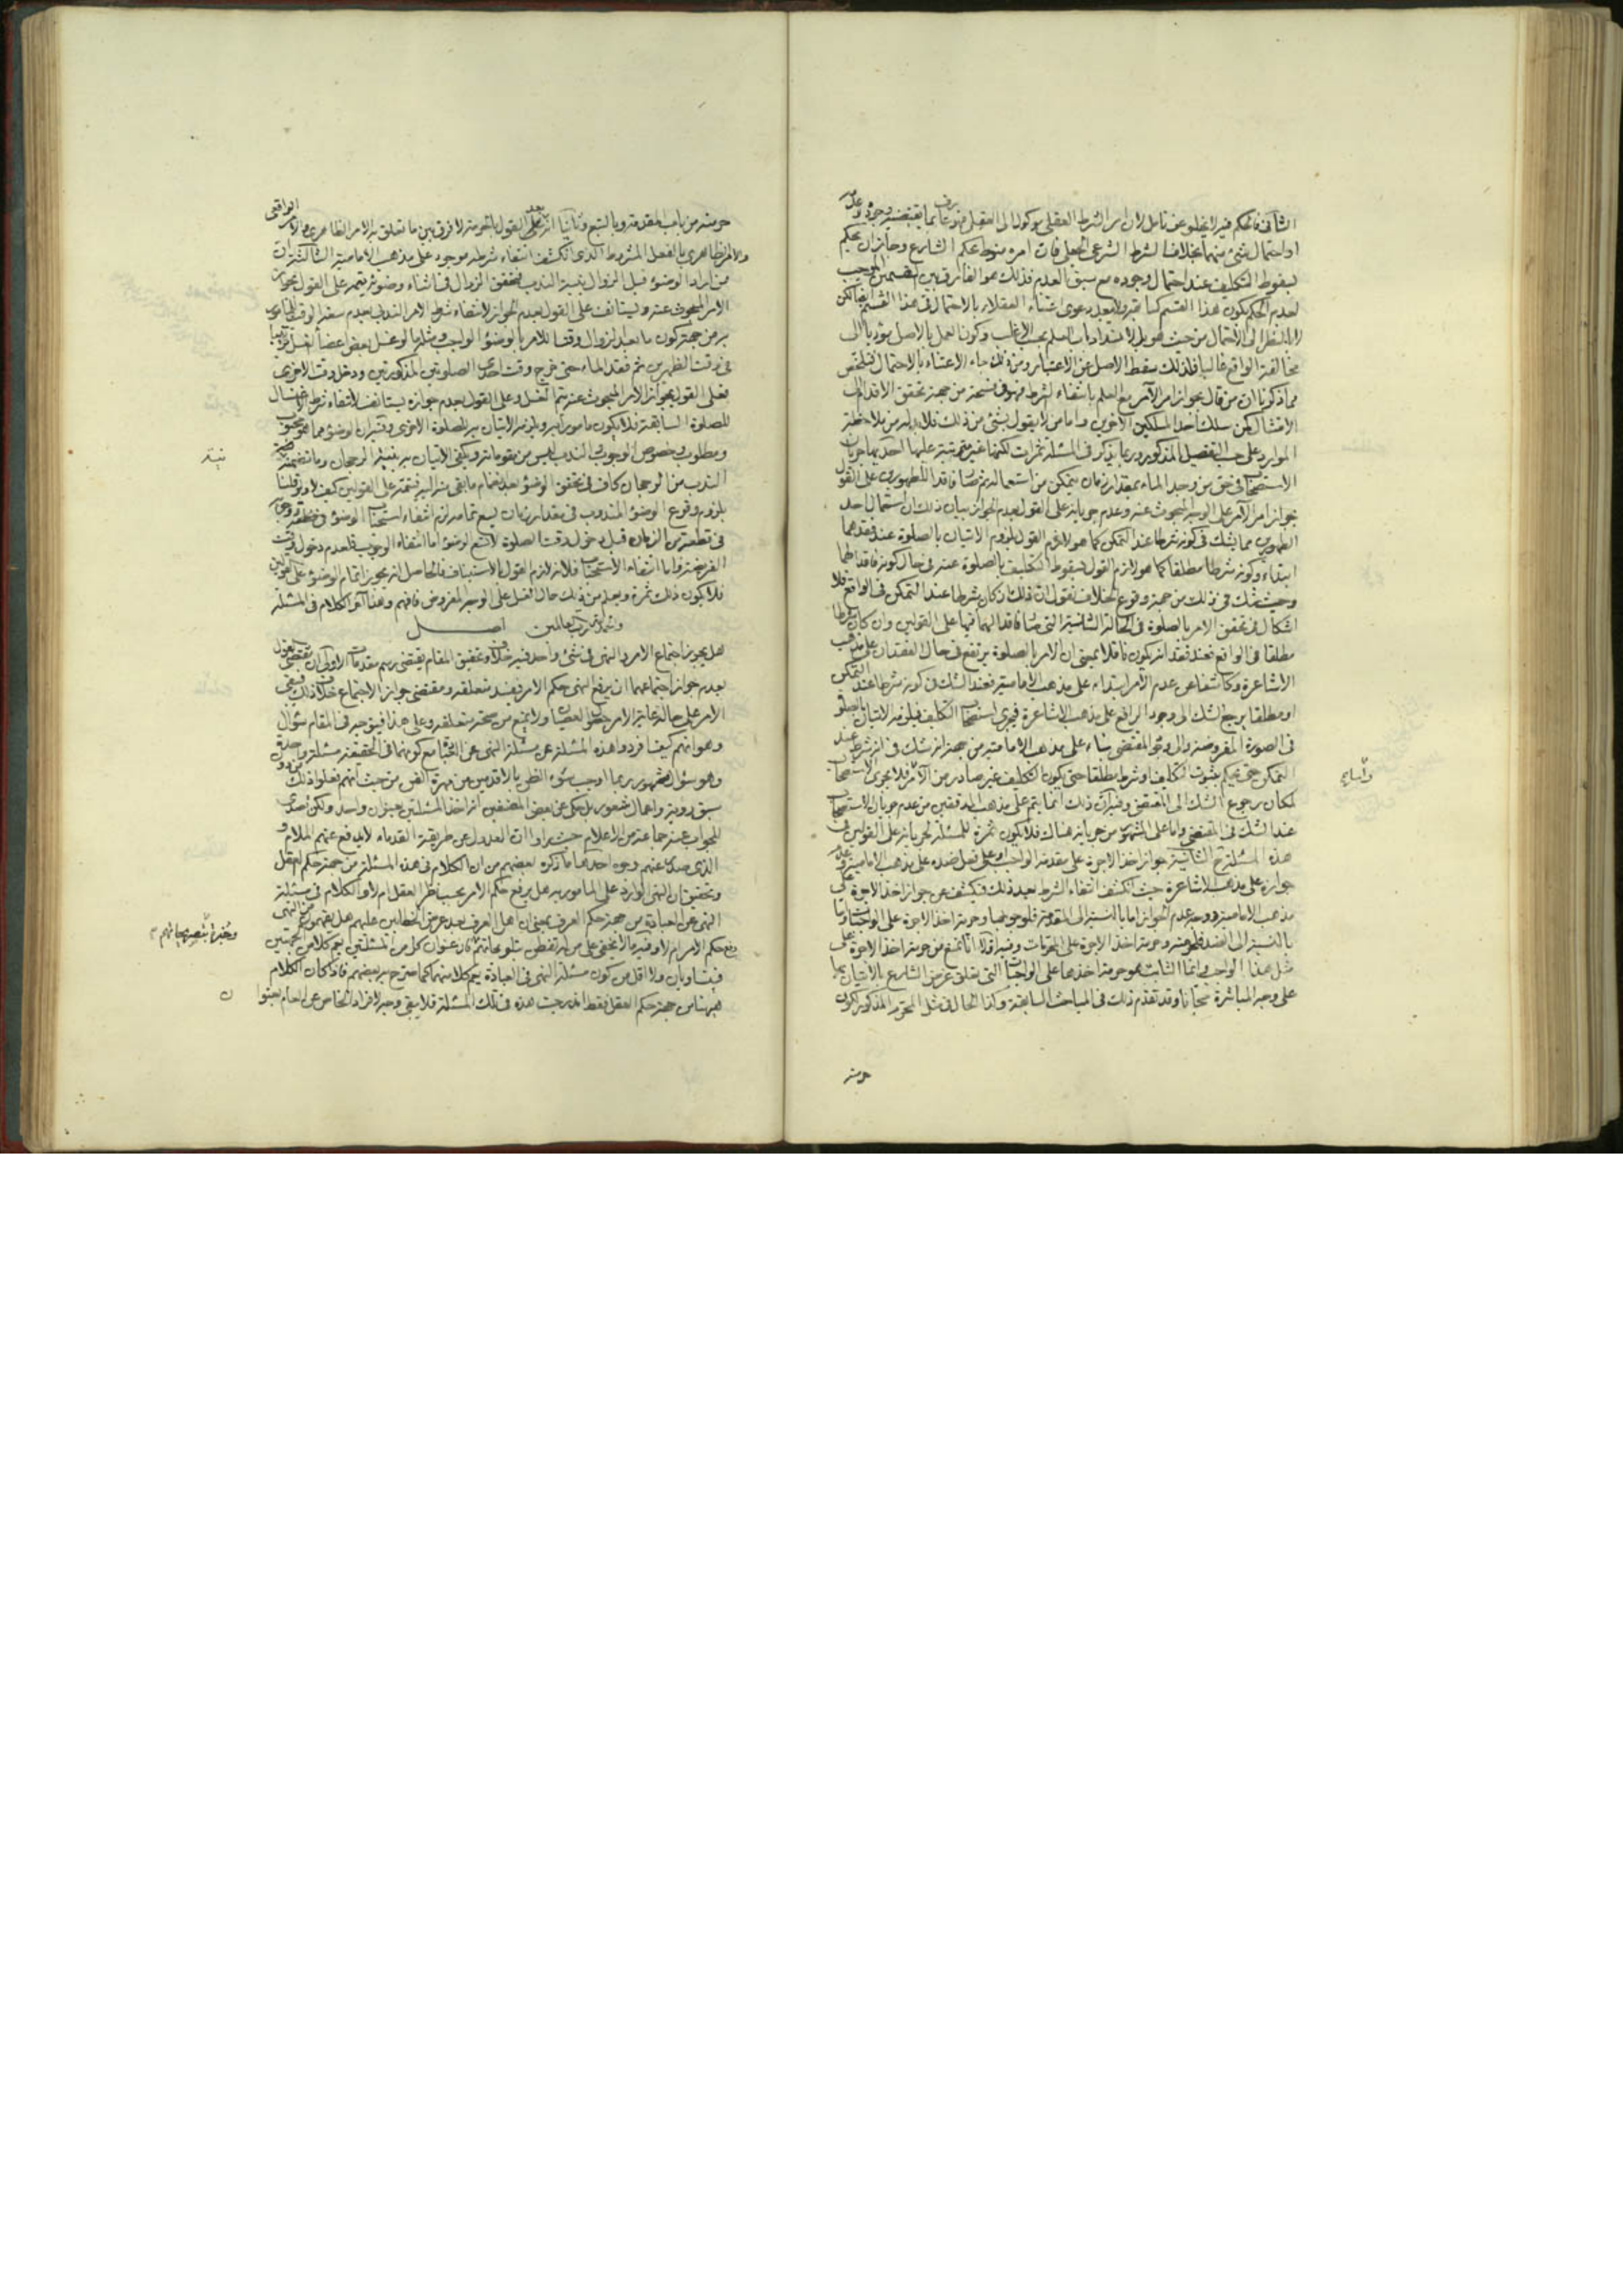 الثانى فالحكم فيه لا يخلو عن تامل لان امر الشرط العقلى موكول الى العقل
او احتمال شئ منهما بخلاف الشرط الشرعى الجعلى فان امره منوط بحكم الشارع وجاز ان يحكم
بسقوط التكليف عند احتمال وجوده مع سبق العدم فذلك هو الفارق بين القسمين
لعدم الحكم بكون هذا القسم كسابقه ولا يبعد دعوى اعتناء العقلاء بالاحتمال فى هذا القسم ايضا لكن
لا بالنظر الى الاحتمال من حيث هو بل لانسداد باب العلم بحسب الاغلب وكون العمل بالاصل مؤديا الى
مخالفة الواقع غالبا فلذلك سقط الاصل عن الاعتبار ومن ذلك جاء الاعتناء بالاحتمال فتلخص
مما ذكرنا ان من قال بجواز امر الآمر مع العلم بانتفاء الشرط فهو فى فسحة من جهة تحقق الاقدام الى
الامتثال لمن سلك احد المسلكين الآخرين واما من لا يقول بشئ من ذلك فلا بد له من ملاحظة
الموارد على حسب التفصيل المذكور وربما يذكر فى المسئلة ثمرات لكنها غير مترتبة عليها احديها جريان
الاستصحاب فى حق من وجد الماء بمقدار زمان يتمكن من استعماله ثم صار فاقدا للطهورين على القول
بجواز امر الآمر على الوجه المبحوث عنه وعدم جريانه على القول بعدم الجواز بيان ذلك ان استعمال احد
الطهورين مما يشك فى كونه شرطا عند التمكن كما هو لازم القول بلزوم الاتيان بالصلوة عند فقدهما
ابتداء وكونه شرطا مطلقا كما هو لازم القول بسقوط التكليف بالصلوة عنه فى حال كونه فاقدا لهما
وحيث شك فى ذلك من جهة وقوع الخلاف نقول ان ذلك ان كان شرطا عند التمكن فى الواقع فلا
اشكال فى تحقق الامر بالصلوة فى الحالة الثانية التى صار فاقدا لهما فيها على القولين وان كان شرطا
مطلقا فى الواقع فعند فقدانه يكون ناقلا بمعنى ان الامر بالصلوة يرتفع فى حال الفقدان على مذهب
الاشاعرة وكاشفا عن عدم الامر ابتداء على مذهب الامامية فعند الشك فى كونه شرطا عند التمكن
او مطلقا يرجع الشك الى وجود الرافع على مذهب الاشاعرة فيجرى استصحاب التكليف فيلزمه الاتيان بالصلوة
فى الصورة المفروضة والى وجود المقتضى بناء على مذهب الامامية من جهة انه شك فى انه شرط عند
التمكن حتى يحكم بثبوت التكليف او شرط مطلقا حتى يكون التكليف غير صادر من الآمر فلا يجرى الاستصحاب
لمكان رجوع الشك الى المقتضى وفيه ان ذلك انما يتم على مذهب المدققين من عدم جريان الاستصحاب
عند الشك فى المقتضى واما على المشهور من جريانه هناك فلا يكون ثمرة للمسئلة لجريانه على القولين فى
هذه المسئلة ح الثانية جواز اخذ الاجرة على مقدمة الواجب او على فعل ضده على مذهب الامامية وعدم
جوازه على مذهب الاشاعرة حيث انكشف انتفاء الشرط بعد ذلك فيكشف عن جواز اخذ الاجرة على
مذهب الامامية ووجه عدم الجواز اما بالنسبة الى المقدمة فلوجوبها وحرمة اخذ الاجرة على الواجبات واما
بالنسبة الى الضد فلحرمته وحرمة اخذ الاجرة على المحرمات وفيه اولا انا نمنع من حرمة اخذ الاجرة على
مثل هذا الواجب وانما الثابت هو حرمة اخذها على الواجبات التى يتعلق غرض الشارع بالاتيان بها
على وجه المباشرة مجانا وقد تقدم ذلك فى المباحث السابقة وكذا الحال فى مثل المحرم المذكور لكون
حرمته
حرمته من باب المقدمة وبالتبع وثانيا انه بعد على القول بالحرمة لا فرق بين ما تعلق به الامر الظاهرى والامر الواقعى
والامر الظاهرى بالفعل المشروط الذى انكشف انتفاء شرطه موجود على مذهب الامامية الثالثة ان
من اراد الوضوء قبل الزوال بنية الندب فتحقق الزوال فى اثناء وضوئه يتمه على القول بجواز
الامر المبحوث عنه ويستانف على القول بعدم الجواز لانتفاء شرط الامر الندبى بعدم سعة الوقت للمامور
به من جهة كون ما بعد الزوال وقتا للامر بالوضوء الواجب ومثلها لو غسل بعض اعضاء الغسل
فى وقت الظهرين ثم فقد الماء حتى خرج وقت احدى الصلوتين المذكورتين ودخل وقت الاخرى
فعلى القول بجواز الامر المبحوث عنه يتم الغسل وعلى القول بعدم جوازه يستانف لانتفاء شرط الاغتسال
للصلوة السابقة فلا يكون مامورا به ويلزمه الاتيان به للصلوة الاخرى وفيه ان الوضوء مما هو محبوب
ومطلوب وخصوص الوجوب والندب ليس من مقوماته ويكفى الاتيان به بنية الرجحان وما تضمنه
الندب من الرجحان كاف فى تحقق الوضوء بعد انضمام ما بقى منه اليه فيتمه على القولين كيف لا ولو قلنا
بلزوم وقوع الوضوء المندوب فى مقدار زمان يسع تمامه لزم انتفاء استحباب الوضوء
فى قطعة من الزمان قبل دخول وقت الصلوة لا تسع الوضوء اما انتفاء الوجوب فلعدم دخول وقت
الفريضة واما انتفاء الاستحباب فلانه لازم القول بالاستيناف فالحاصل انه يجوز اتمام الوضوء على القولين
فلا يكون ذلك ثمرة ويعلم من ذلك حال الغسل على الوجه المفروض فافهم وهذا آخر الكلام فى المسئلة
والحمد لله رب العالمين اصل
هل يجوز اجتماع الامر والنهى فى شئ واحد فيه خلاف وتحقيق المقام يقتضى رسم مقدمات الاولى ان مقتضى القول
بعدم جواز اجتماعهما ان يرفع النهى حكم الامر فيفسد متعلقه ومقتضى جواز الاجتماع خلاف ذلك فيبقى
الامر على حاله غاية الامر حصول العصيان ولا يمنع من صحة متعلقه وعلى هذا فيتوجه فى المقام سؤال
وهو انهم كيف افردوا هذه المسئلة عن مسئلة النهى عن العبادة مع كونهما فى الحقيقة مسئلة واحدة
وهو سؤال مشهور ربما اوجب سوء الظن بالاقدمين من مهرة الفن من حيث انهم فعلوا ذلك من دون
سبق روية واعمال شعور بل حكى عن بعض المصنفين انه اخذ المسئلتين بعنوان واحد ولكن تصدى
للجواب عنه جماعة من الاعلام حيث راوا ان العدول عن طريقة القدماء لا يدفع عنهم الملام و
الذى صدر عنهم وجوه احدها ما ذكره بعضهم من ان الكلام فى هذه المسئلة من جهة حكم العقل
وتحقيق ان النهى الوارد على المامور به هل يرفع حكم الامر بحسب نظر العقل ام لا والكلام فى مسئلة
النهى عن العبادة من جهة حكم العرف بمعنى ان اهل العرف بعد عرض الخطابين عليهم هل يفهمون من النهى
رفع حكم الامر ام لا وفيه ما لا يخفى على من له تفطن بمقالاتهم فان عنوان كل من المسئلتين يعم كلا من الجهتين
فيتساويان ولا اقل من كون مسئلة النهى فى العبادة يعم كلا منهما كما صرح به بعضهم فاذا كان الكلام
ههنا من جهة حكم العقل فقط اندرجت هذه فى تلك المسئلة فلا يبقى وجه لافراد الخاص عن العام